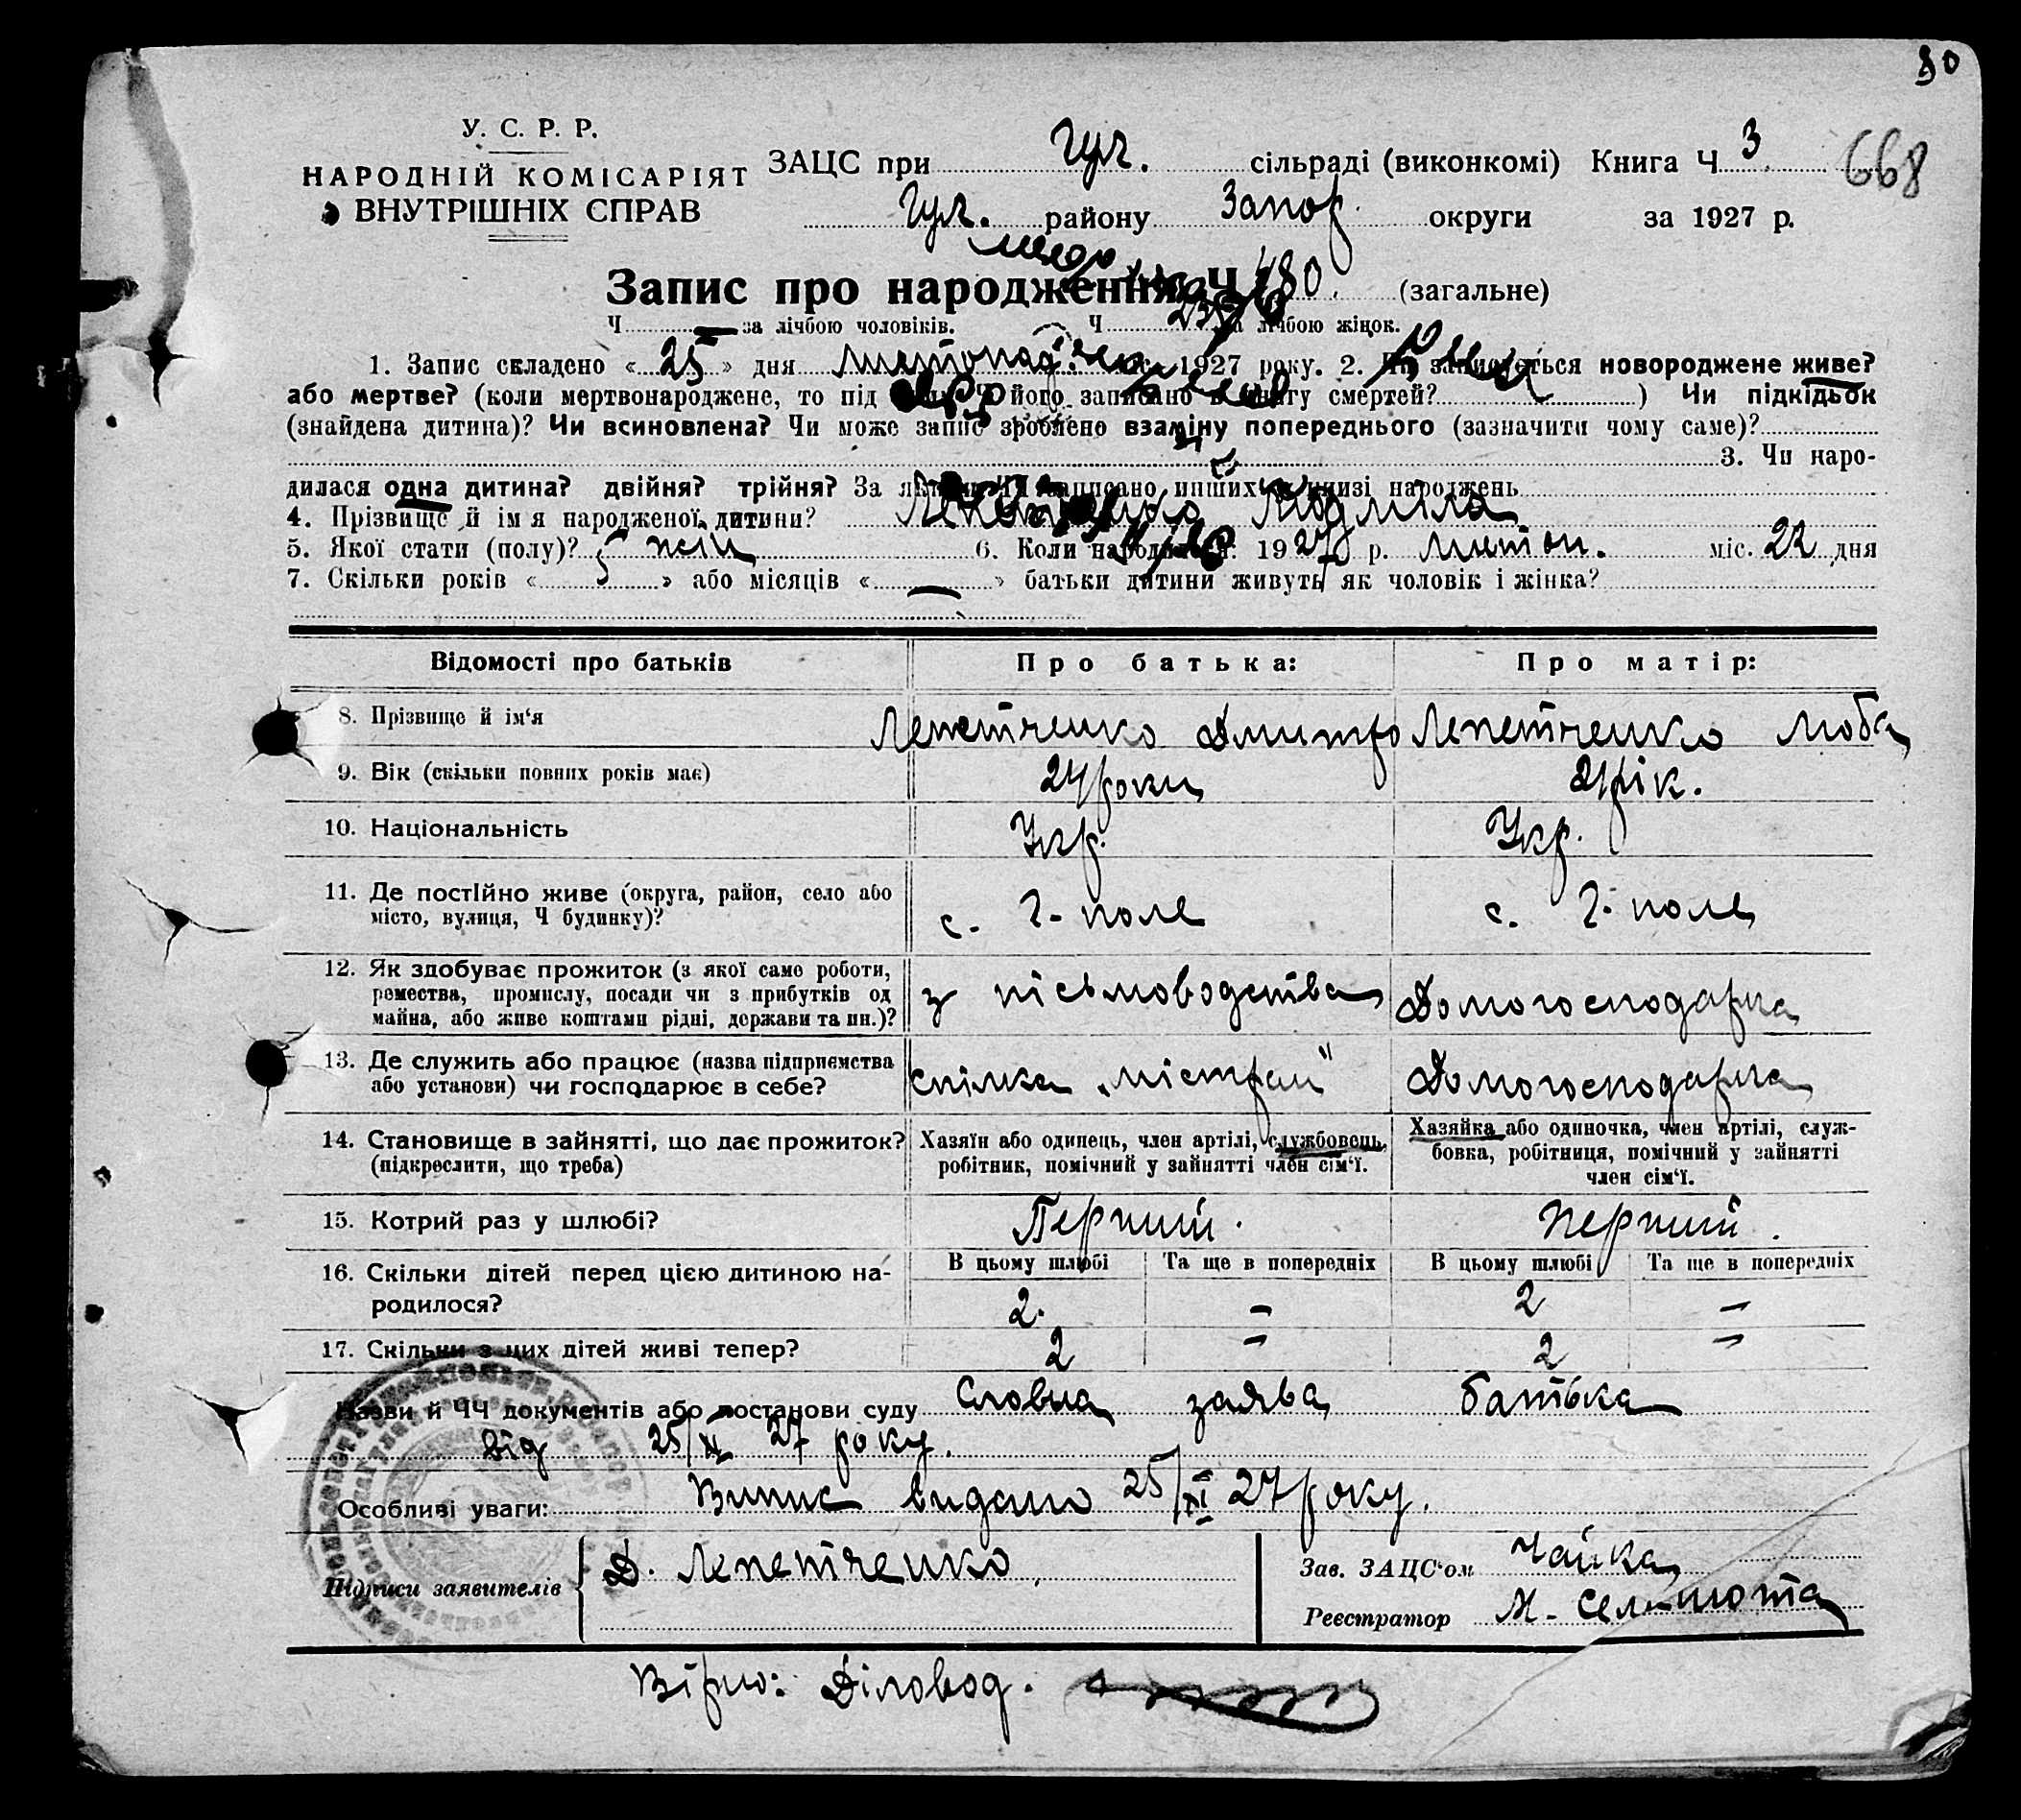 80
У. С. Р. Р.
НАРОДНІЙ КОМІСАРІЯТ
ВНУТРІШНІХ СПРАВ
ЗАЦС при Гул. сільраді (виконкомі) Книга Ч 3 668
Гул. району Запор. округи за 1927 р.
Запис про народження Ч 480 (загальне)
Ч — за лічбою чоловіків. Ч за лічбою жінок.
1. Запис складено « 25 » дня листопад. 1927 року. 2. новороджене живе?
або мертве? (коли мертвонароджене, то під його записано в книгу смертей? ) Чи підкідьок
(знайдена дитина)? Чи всиновлена? Чи може запис зроблено взаміну попереднього (зазначити чому саме)?
3. Чи наро-
дилася одна дитина? двійня? трійня? За записано инших в книзі народжень
4. Прізвище й ім я народженої дитини? Людміла
5. Якої стати (полу)? жін 6. Коли народилася: 1927 р. листоп. міс. 22 дня
7. Скільки років « » або місяців « — » батьки дитини живуть як чоловік і жінка?
Відомості про батьків Про батька: Про матір:
8. Прізвище й ім‘я Лепетченко Дмитро Лепетченко Люба
9. Вік (скільки повних років має) 24 роки 21 рік.
10. Національність Укр. Укр.
11. Де постійно живе (округа, район, село або
місто, вулиця, Ч будинку)? с. Г-поле с. Г-поле
12. Як здобуває прожиток (з якої само роботи,
ремества, промислу, посади чи з прибутків од
майна, або живе коштами рідні, держави та ин.)? з пісьмоводства Домогосподарка
13. Де служить або працює (назва підприємства
або установи) чи господарює в себе? спілка „містран" Домогосподарка
14. Становище в зайнятті, що дає прожиток?
(підкреслити, що треба)
Хазяїн або одинець, член артілі, службовець,
робітник, помічний у зайнятті член сім‘ї.
Хазяйка або одиночка, член артілі, служ-
бовка, робітниця, помічний у зайнятті
член сім‘ї.
15. Котрий раз у шлюбі? Перший. Перший.
16. Скільки дітей перед цією дитиною на-
родилося?
В цьому шлюбі Та ще в попередніх В цьому шлюбі Та ще в попередніх
2. – 2 –
17. Скільки з них дітей живі тепер? 2 – 2 –
Назви й ЧЧ документів або постанови суду Словна заява батька
від 25/XI 27 року.
Особливі уваги: Випис видано 25/XI 27 року.
Підписи заявителів Д. Лепетченко
Зав. ЗАЦС‘ом Чайка
Реєстратор М.
Вірно: Діловод.